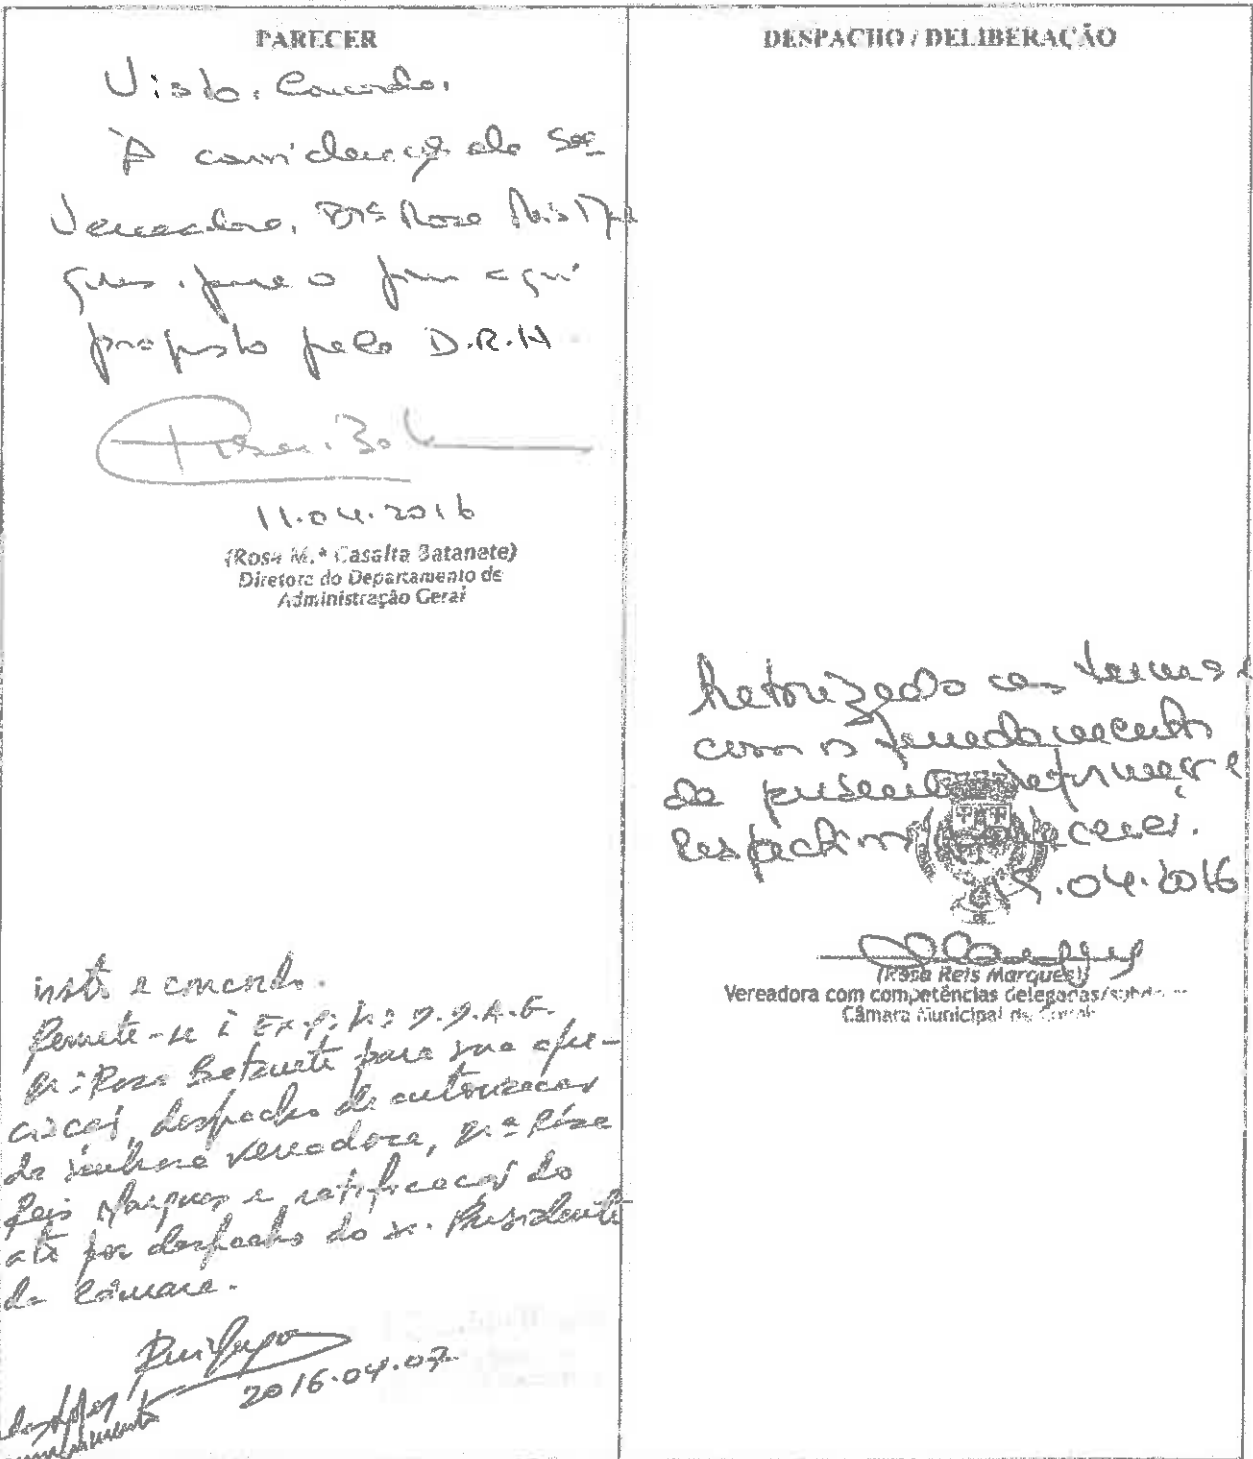 PARECER
Visto. Concordo.
À consideração da Srª
Vereadora, Drª Rosa Reis Mar
ques, para o fim aqui
proposto pela D.R.H
11.04.2016
(Rosa M.ª Casalta Batanete)
Diretora do Departamento de
Administração Geral
Visto e concordo.
Remete-se à
Rosa Batanete para sua apre-
ciação, despacho de autorização
da senhora Vereadora, Drª Rosa
Reis Marques e ratificação do
ato por despacho do Sr. Presidente
da Câmara.
2016.04.07
DESPACHO / DELIBERAÇÃO
Autorizado nos termos e
com o fundamento
da presente informação e
respectivo parecer.
.04.2016
(Rosa Reis Marques)
Vereadora com competências delegadas/
Câmara Municipal de